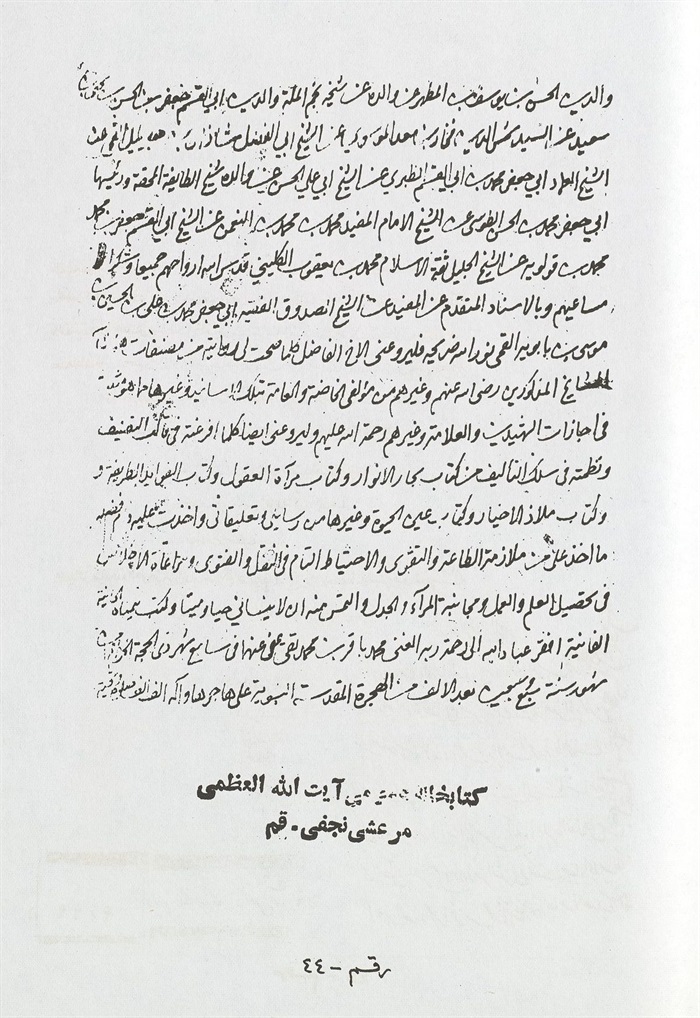 والدين الحسن بن يوسف بن المطهر عن والده عن شيخه نجم الملة والدين ابي القسم جعفر بن الحسن بن
سعيد عن السيد شمس الدين فخار بن معد الموسوي عن الشيخ ابي الفضل شاذان بن جبرئيل القمي عن
الشيخ العماد ابي جعفر محمد بن ابي القسم الطبري عن الشيخ ابي علي الحسن عن والده شيخ الطايفة المحقة ورئيسها
ابي جعفر محمد بن الحسن الطوسي عن الشيخ الامام المفيد محمد بن محمد بن النعمن عن الشيخ ابي القسم جعفر بن محمد
محمد بن قولويه عن الشيخ الجليل ثقة الاسلام محمد بن يعقوب الكليني قدس الله ارواحهم جميعا وشكر الله
مساعيهم وبالاسناد المتقدم عن المفيد عن الشيخ الصدوق الفقيه ابي جعفر محمد بن علي بن الحسين بن
موسى بن بابويه القمي نور الله ضريحه فليرو عني الاخ الفاضل كلما صحت لي روايته من مصنفات هؤلاء
المشايخ المذكورين رضي الله عنهم وغيرهم من مؤلفي الخاصة والعامة بتلك الاسانيد وغيرها مما هو مثبتة
في اجازات الشهيدين والعلامة وغيرهم رحمة الله عليهم وليرو عني ايضا كلما افرغته في قالب التصنيف
ونظمته في سلك التاليف من كتاب بحار الانوار وكتاب مرآة العقول وكتاب الفوايد الطريفة و
وكتاب ملاذ الاخيار وكتاب عين الحيوة وغيرها من رسايلي وتعليقاتي واخذت عليه دام فضله
ما اخذ علي من ملازمة الطاعة والتقوى والاحتياط التام في النقل والفتوى ومراعاة الاخلاص
في تحصيل العلم والعمل ومجانبة المرآء والجدل والتمس منه ان لا ينساني حيا وميتا وكتب بيمناه الجانية
الفانية افقر عباد الله الى رحمة ربه الغني محمد باقر بن محمد تقي عفي عنهما في سابع شهر ذي الحجة الحرام
شهور سنة سبعين بعد الالف من الهجرة المقدسة النبوية على هاجرها وآله الف الف صلوة وتحية
كتابخانه عمومی آیت الله العظمی
مرعشی نجفی - قم
رقم - ٤٤